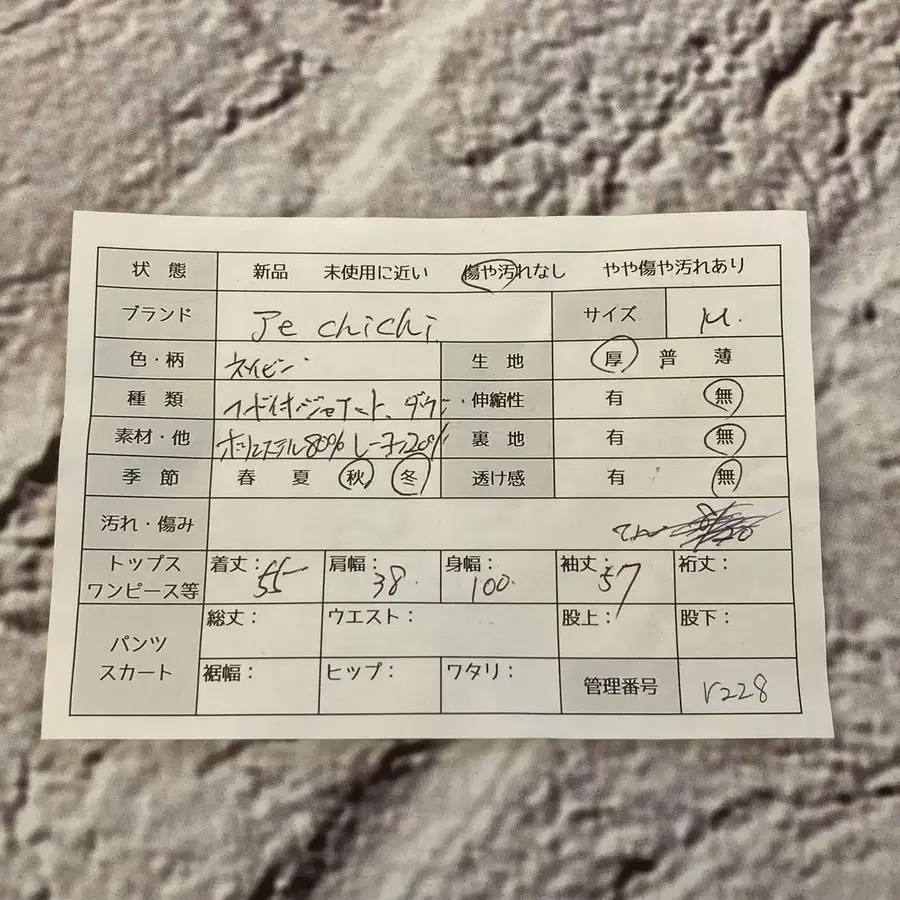 状態 新品 未使用に近い 傷や汚れなし やや傷や汚れあり
ブランド Je chichi サイズ M.
色・柄 ネイビー 生地 厚 普 薄
種類 ジャケット、ダウン 伸縮性 有 無
素材・他 ポリエステル80% レーヨン20% 裏地 有 無
季節 春 夏 秋 冬 透け感 有 無
汚れ・傷み
トップス ワンピース等 着丈：55 肩幅：38 身幅：100 袖丈：57 裄丈：
パンツ スカート 総丈： ウエスト： 股上： 股下：
裾幅： ヒップ： ワタリ： 管理番号 r228